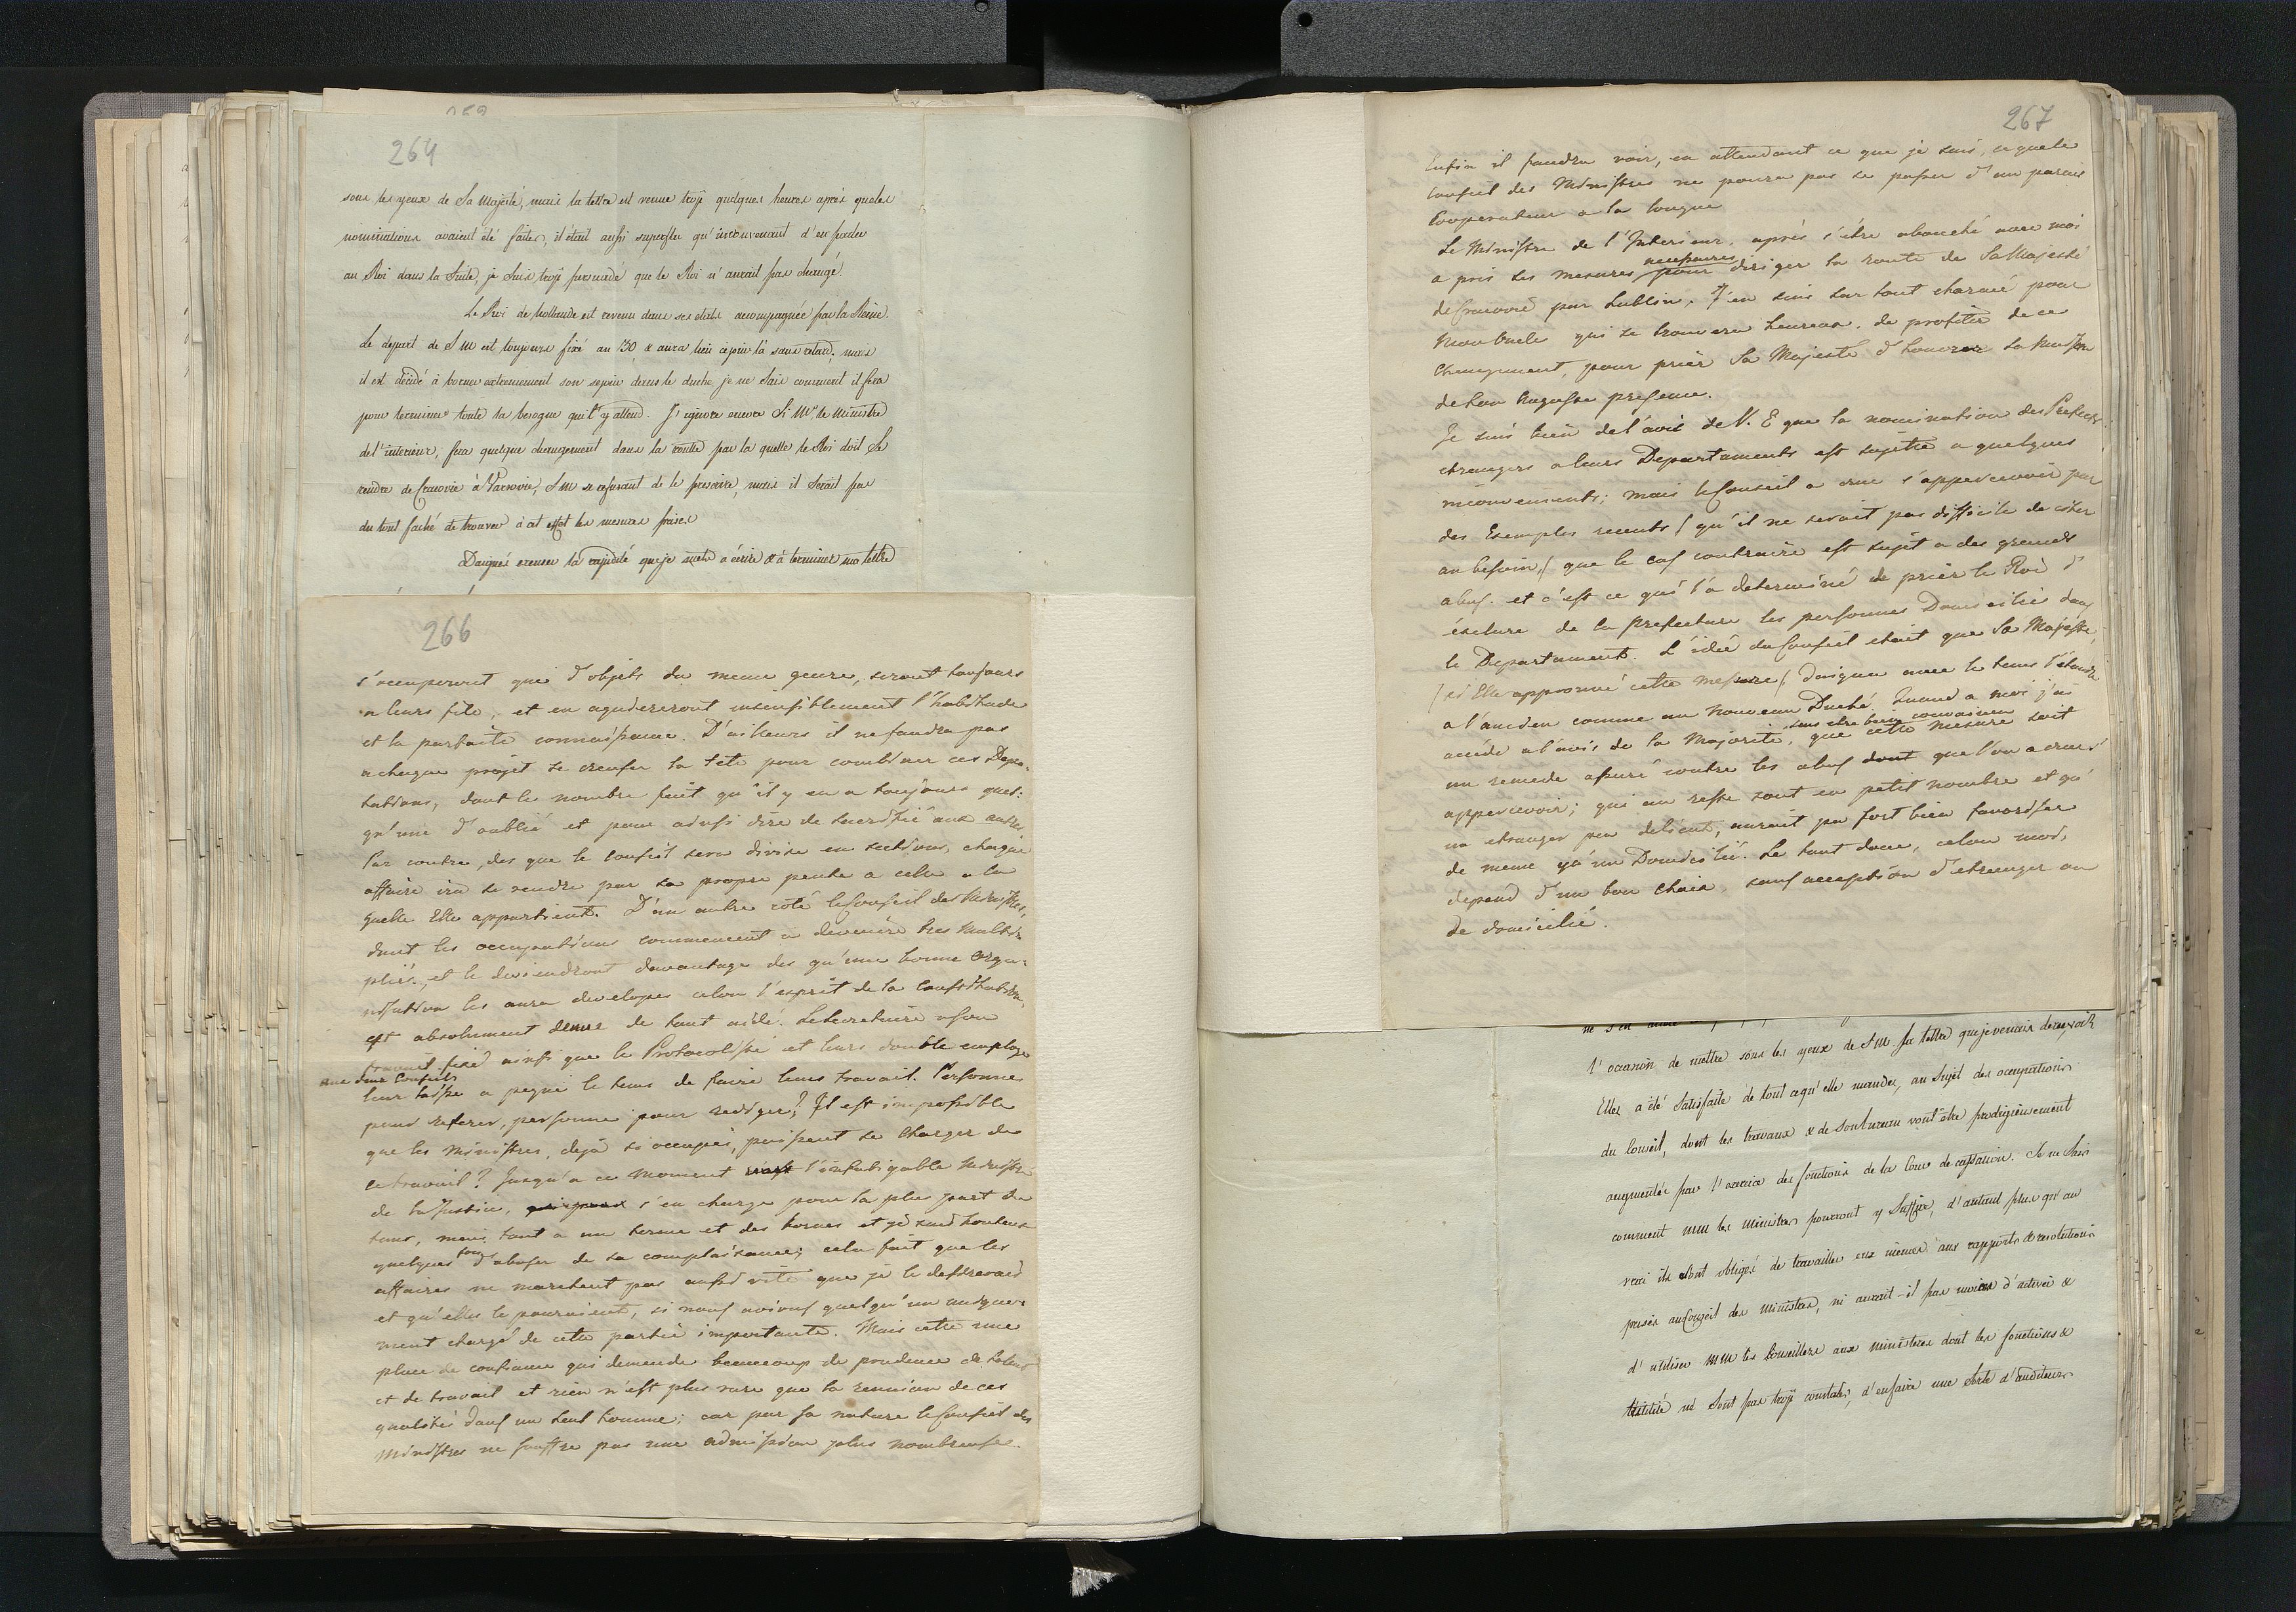 259
264
sous les yeux de Sa Majesté, mais la lettre est venue trop quelques heures après que les
nominations avaient été faites, il était aussi superflu qu'inconvenant d'en parler
au Roi dans la Suite, je suis trop persuadé que le Roi n'aurait pas changé.
Le Roi de hollande est revenu dans ses états accompagnée par la Reine.
Le depart de S M est toujours fixé au 30 & aura lieu ce jour là sans retard; mais
il est décidé à borner extremement son sejour dans le duché, je ne Sais comment il fera
pour terminer toute la besogne qui l'y attend. J'ignore encore Si Mr le Ministre
de l'interieur, fera quelque changement dans la route par la quelle le Roi doit Se
rendre de Cracovie à Varsovie, S M se refusant de le prescrire, mais il serait pas
du tout faché de trouver à cet effet les mesures prises
Daignés excuser la rapidité que je mets a écrire & à terminer ma lettre
266
s'occuperont que d'objets du meme genre, seront toujours
a leurs file, et en aquereront insensiblement l'habitude
et la parfaite connaissance. D'ailleurs il ne faudra pas
a chaque projet se creuser la tête pour combiner ces Depu-
tations, dont le nombre fait qu'il y en a toujours quel-
qu'une d'oublié et pour ainsi dire de sacrifié aux autres.
Par contre, des que le Conseil sera divisé en sections, chaque
affaire ira se rendre par sa propre pente a celle a la
quelle Elle appartient. D'un autre coté le Conseil des Ministres,
dont les occupations commencent a devenir tres multi-
pliés, et le deviendront davantage des qu'une bonne orga-
nisation les aura developés celon l'esprit de la Constitution,
est absolument denué de tout aide. Le Secretaire a son
travail fixé ainsi que le Protocoliste et leurs double employe
aux deux Conseils
leur laisse a peine le tems de faire leur travail. Personne
pour referer, personne pour rediger! Il est impossible
que les Ministres, deja si occupés, puissent se charger de
ce travail? Jusqu'a ce moment l'infatigable Ministre
de la Justice, s'en charge pour la plus part du
tems, mais tout a un terme et des bornes et je suis honteux
quelques fois d'abuser de sa complaisance; cela fait que les
affaires ne marchent pas aussi vite que je le desirerais
et qu'elles le pourraient, si nous avions quelqu'un unique-
ment chargé de cette partie importante. Mais cette une
place de confiance qui demande beaucoup de prudence de talent
et de travail et rien n'est plus rare que la reunion de ces
qualités dans un seul homme; car par sa nature le Conseil des
Ministres ne souffre pas une admission plus nombreuse.
267
Enfin il faudra voir, en attendant ce que je sais, ce que le
Conseil des Ministres ne poura pas se passer d'un pareil
Cooperateur a la longue
Le Ministre de l'Interieur, après s'être abouché avec moi
necessaires
a pris les mesures pour diriger la route de Sa Majesté
de Cracovie par Lublin. J'en suis sur tout charmé pour
Mon Oncle qui se trouvera heureux, de profiter de ce
changement, pour prier Sa Majesté d'honorer sa Maison
de Son Auguste presence.
Je suis bien de l'avis de V. E que la nomination des Prefects
etrangers a leurs Departaments est sujette a quelques
inconvenients; mais le Conseil a crue s'appercevoir par
des Exemples recents / qu'il ne serait pas difficile de citer
au besoin / que le cas contraire est sujet a des grands
abus. et c'est ce qui l'a determiné de prier le Roi d'
éxclure de la Prefecture les personnes Domiciliés dans
le Departament. L'idée du Conseil etait que Sa Majesté,
/ si Elle approuve cette mesure / daigna avec le tems l'étendre
a l'ancien comme au nouveau Duché. Quand a moi j'ai
sans etre bien convaincu
accédé a l'avis de la Majorité, que cette mesure soit
un remede assuré contre les abus dont que l'on a crus
appercevoir; qui au reste sont en petit nombre et qu'
un etranger peu delicat, aurait pu fort bien favoriser
de meme qu'un Domicilié. Le tout donc, celon moi,
depend d'un bon choix, sauf acception d'etranger ou
de domicilié.
l'occasion de mettre sous les yeux de S M. la lettre que je venais de reçevoir
Elles a été Satisfaite de tout ce qu'elle mande, au Sujet des occupations
du Conseil, dont les travaux & de son bureau vont être prodigieusement
augmentés par l'exercice des fonctions de la Cour de cassation. Je ne Sais
comment MM les Ministres pourront y Suffire, d'autant plus qu'au
vrai ils sont obligés de travailler eux mêmes aux rapports & resolutions
prises au Conseil des Ministres, ni aurait-il pas moien d'activer &
d'utiliser MM les Conseillers aux ministeres dont les fonctions &
l'utilité né Sont pas trop constatés, d'en faire une sorte d'auditeurs